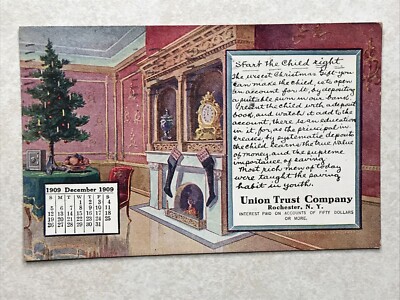 Start the Child right
The wisest Christmas Gift you
can make the child, is to open
an account for it, by depositing
a suitable sum in our bank.
Present the child with a deposit
book, and watch it add to the
account, there is an education
in it, for, as the principal in-
creases, by systematic deposits
the child learns the true value
of money, and the supreme
importance of saving
Most rich men of today
were taught the saving
habit in youth.
Union Trust Company
Rochester, N. Y.
INTEREST PAID ON ACCOUNTS OF FIFTY DOLLARS
OR MORE.
1909 December 1909
S M T W T F S
1 2 3 4
5 6 7 8 9 10 11
12 13 14 15 16 17 18
19 20 21 22 23 24 25
26 27 28 29 30 31